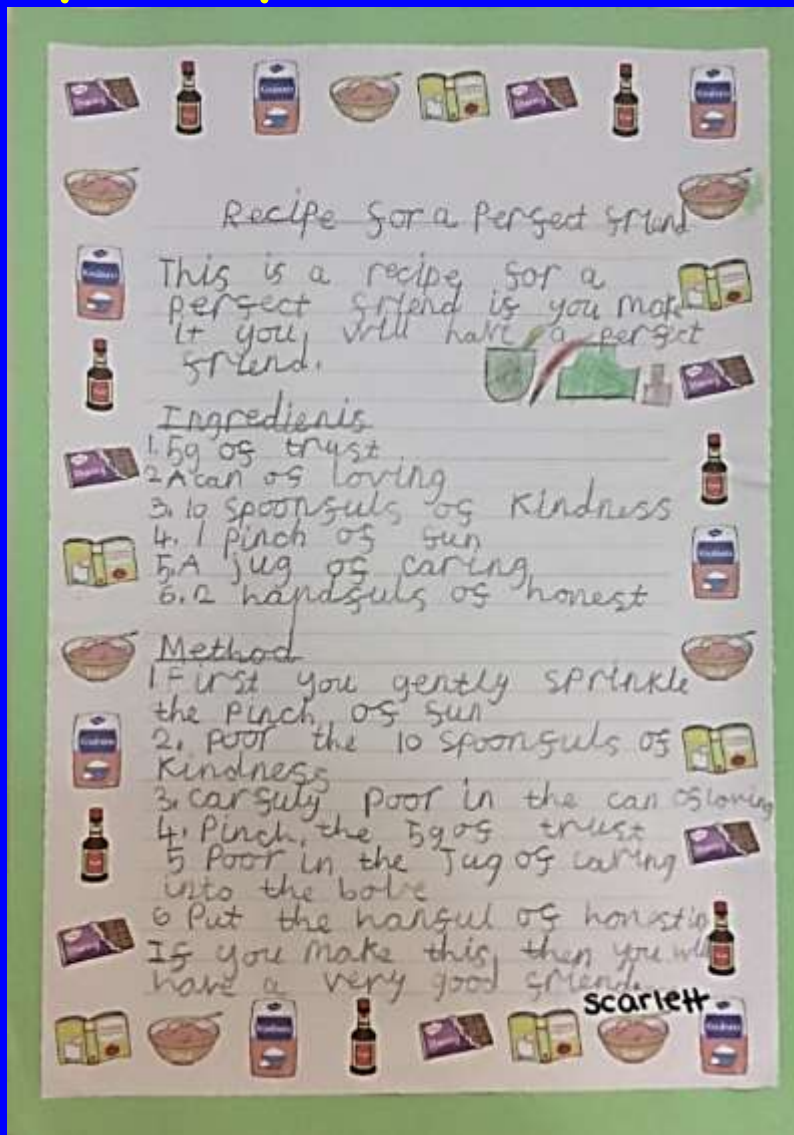 Recipe for a Perfect friend
This is a recipe for a
perfect friend if you make
it you will have a perfect
friend.
Ingredients
1. 5g of trust
2 A can of loving
3. 10 spoonfuls of kindness
4. 1 pinch of fun
5. A jug of caring
6. 2 handfuls of honest
Method
1 First you gently sprinkle
the pinch of fun
2. poor the 10 spoonfuls of
kindness
3. carfuly poor in the can of loving
4. Pinch the 5g of trust
5 Poor in the Jug of caring
into the bole
6 Put the hanful of honest in
If you make this, then you will
have a very good friend.
scarlett